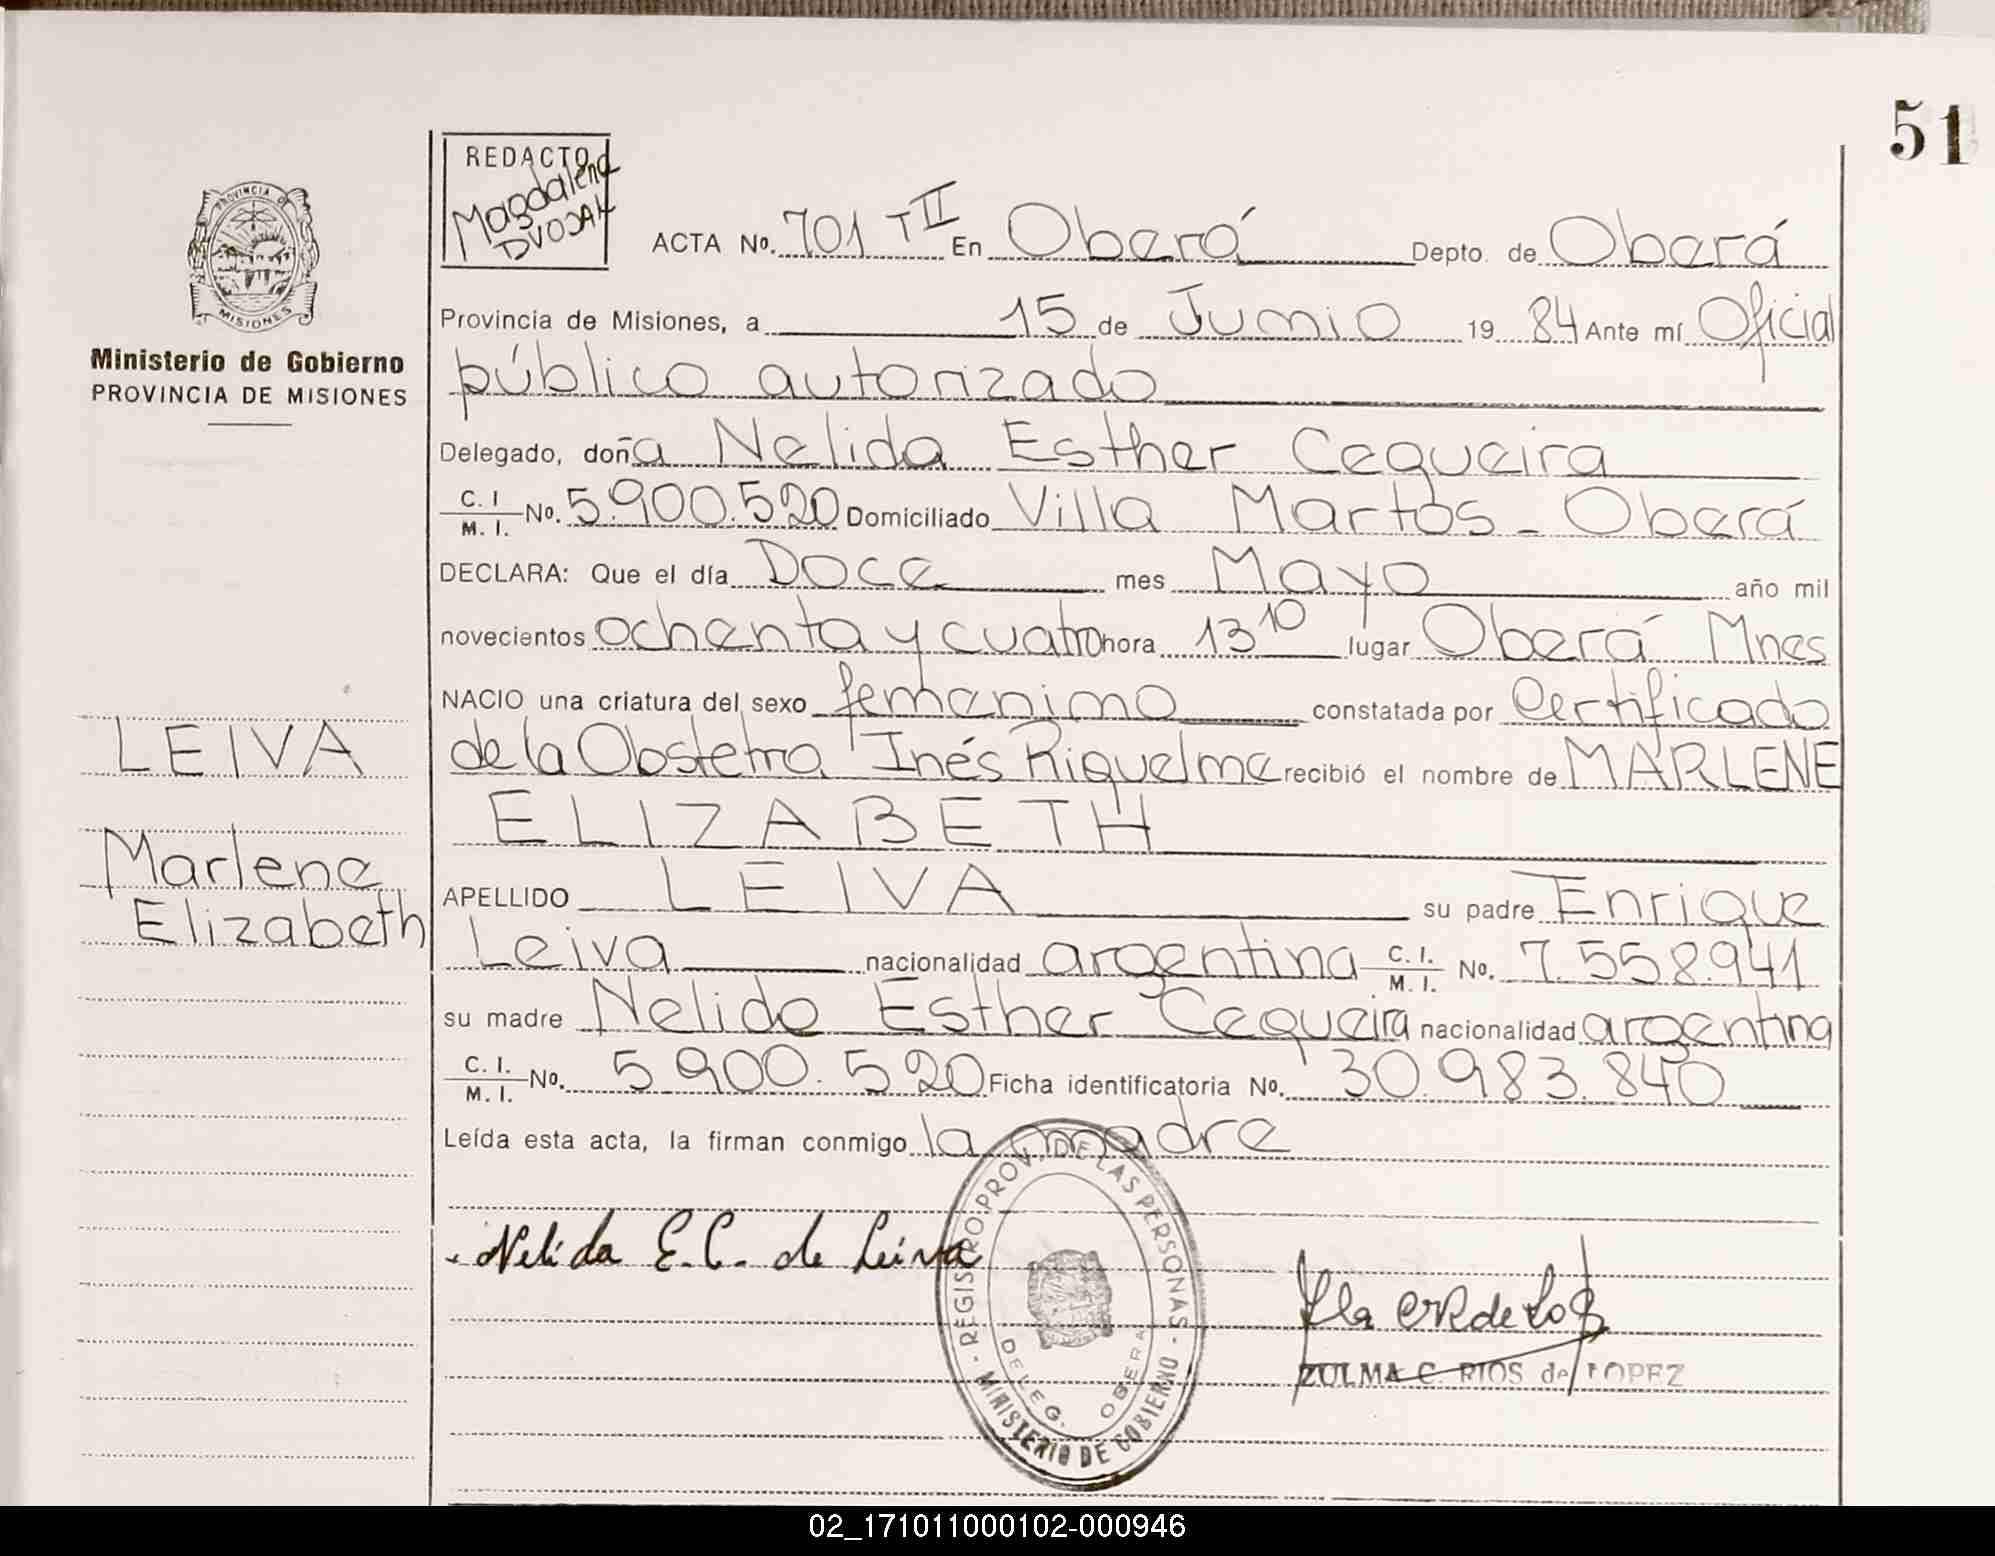 51
REDACTO
Magdalena
DVOJAK
PROVINCIA DE
MISIONES
ACTA No. 701 T II En Oberá Depto. de Oberá
Provincia de Misiones, a 15 de Junio 19 84 Ante mí Oficial
Ministerio de Gobierno
PROVINCIA DE MISIONES
público autorizado
Delegado, doña Nelida Esther Cequeira
C. I. M. I. No. 5.900.520 Domiciliado Villa Martos - Oberá
DECLARA: Que el día Doce mes Mayo año mil
novecientos ochenta y cuatro hora 13 10 lugar Oberá Mnes
NACIO una criatura del sexo femenino constatada por Certificado
LEIVA
de la Obstetra Inés Riquelme recibió el nombre de MARLENE
ELIZABETH
Marlene
Elizabeth
APELLIDO LEIVA su padre Enrique
Leiva nacionalidad argentina C. I. M. I. No. 7.558.941
su madre Nelida Esther Cequeira nacionalidad argentina
C. I. M. I. No. 5.900.520 Ficha identificatoria No. 30.983.840
Leída esta acta, la firman conmigo la madre
Nelida E. C. de Leiva
REGISTRO PROV. DE LAS PERSONAS
MINISTERIO DE GOBIERNO
DELEG. OBERA
ZULMA C. RIOS de LOPEZ
02_171011000102-000946